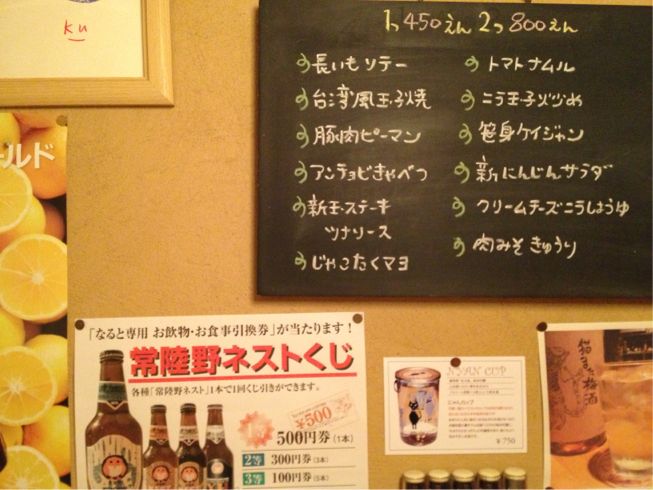 ku
1つ450えん 2つ800えん
長いもソテー
台湾風玉子焼
豚肉ピーマン
アンチョビきゃべつ
新玉ステーキ
ツナソース
じゃこたくマヨ
トマトナムル
ニラ玉子炒め
笹身ケイジャン
新にんじんサラダ
クリームチーズニラしょうゆ
肉みそきゅうり
ールド
「なると専用 お飲物・お食事引換券」が当たります!
常陸野ネストくじ
各種「常陸野ネスト」1本で1回くじ引きができます。
¥500
500円券(1本)
2等 300円券(3本)
3等 100円券(5本)
NYAN CUP
にゃんカップ
¥750
猫また梅酒